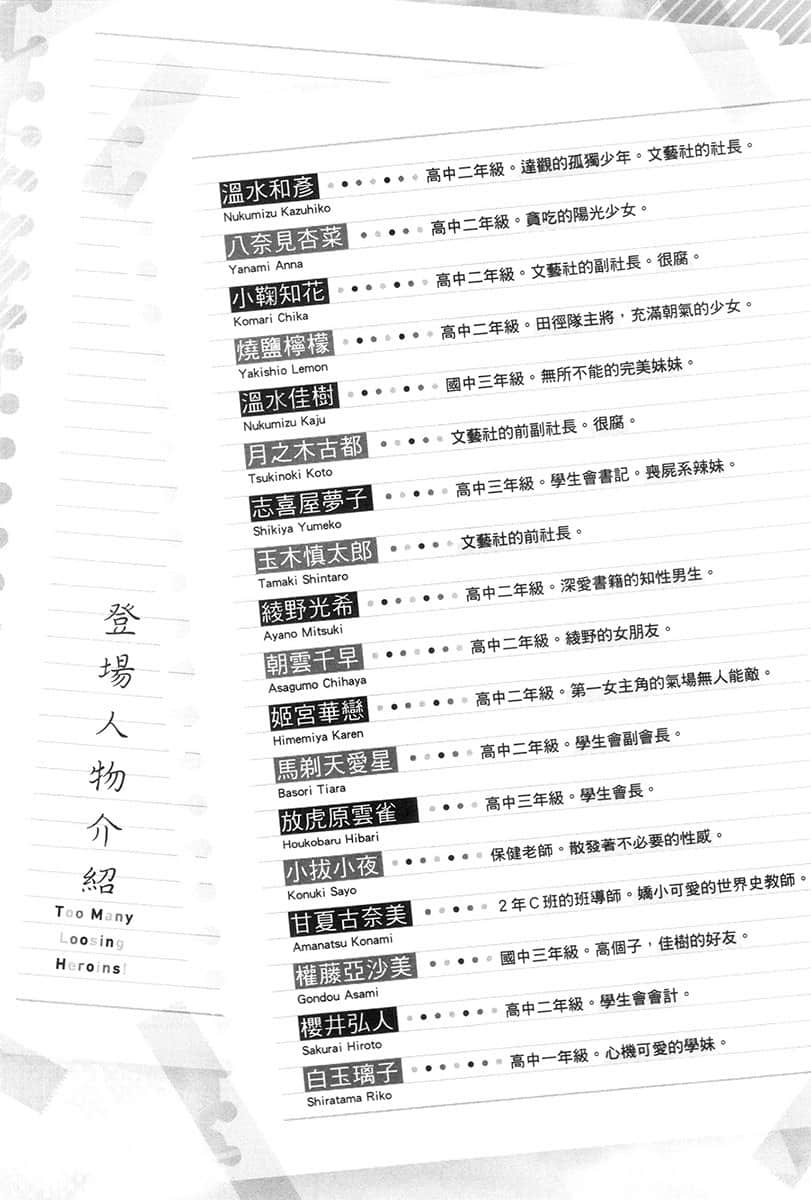 登場人物介紹
Too Many
Loosing
Heroins!
溫水和彥 高中二年級。達觀的孤獨少年。文藝社的社長。
Nukumizu Kazuhiko
八奈見杏菜 高中二年級。貪吃的陽光少女。
Yanami Anna
小鞠知花 高中二年級。文藝社的副社長。很腐。
Komari Chika
燒鹽檸檬 高中二年級。田徑隊主將，充滿朝氣的少女。
Yakishio Lemon
溫水佳樹 國中三年級。無所不能的完美妹妹。
Nukumizu Kaju
月之木古都 文藝社的前副社長。很腐。
Tsukinoki Koto
志喜屋夢子 高中三年級。學生會書記。喪屍系辣妹。
Shikiya Yumeko
玉木慎太郎 文藝社的前社長。
Tamaki Shintaro
綾野光希 高中二年級。深愛書籍的知性男生。
Ayano Mitsuki
朝雲千早 高中二年級。綾野的女朋友。
Asagumo Chihaya
姬宮華戀 高中二年級。第一女主角的氣場無人能敵。
Himemiya Karen
馬剃天愛星 高中二年級。學生會副會長。
Basori Tiara
放虎原雲雀 高中三年級。學生會長。
Houkobaru Hibari
小拔小夜 保健老師。散發著不必要的性感。
Konuki Sayo
甘夏古奈美 2年C班的班導師。嬌小可愛的世界史教師。
Amanatsu Konami
權藤亞沙美 國中三年級。高個子，佳樹的好友。
Gondou Asami
櫻井弘人 高中二年級。學生會會計。
Sakurai Hiroto
白玉璃子 高中一年級。心機可愛的學妹。
Shiratama Riko